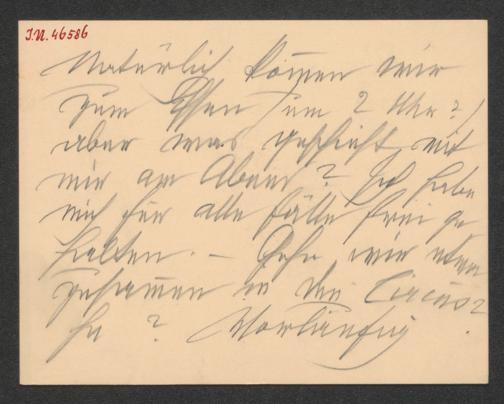 I.N. 46586
Natürlich kom̅en wir
zum Essen (um 2 Uhr?)
aber was geschieht mit
mir am Abend? Ich habe
mich für alle Fälle frei ge
halten. — Gehn wir etwa
zusam̅en in den Circus?
Ja? Vorläufig